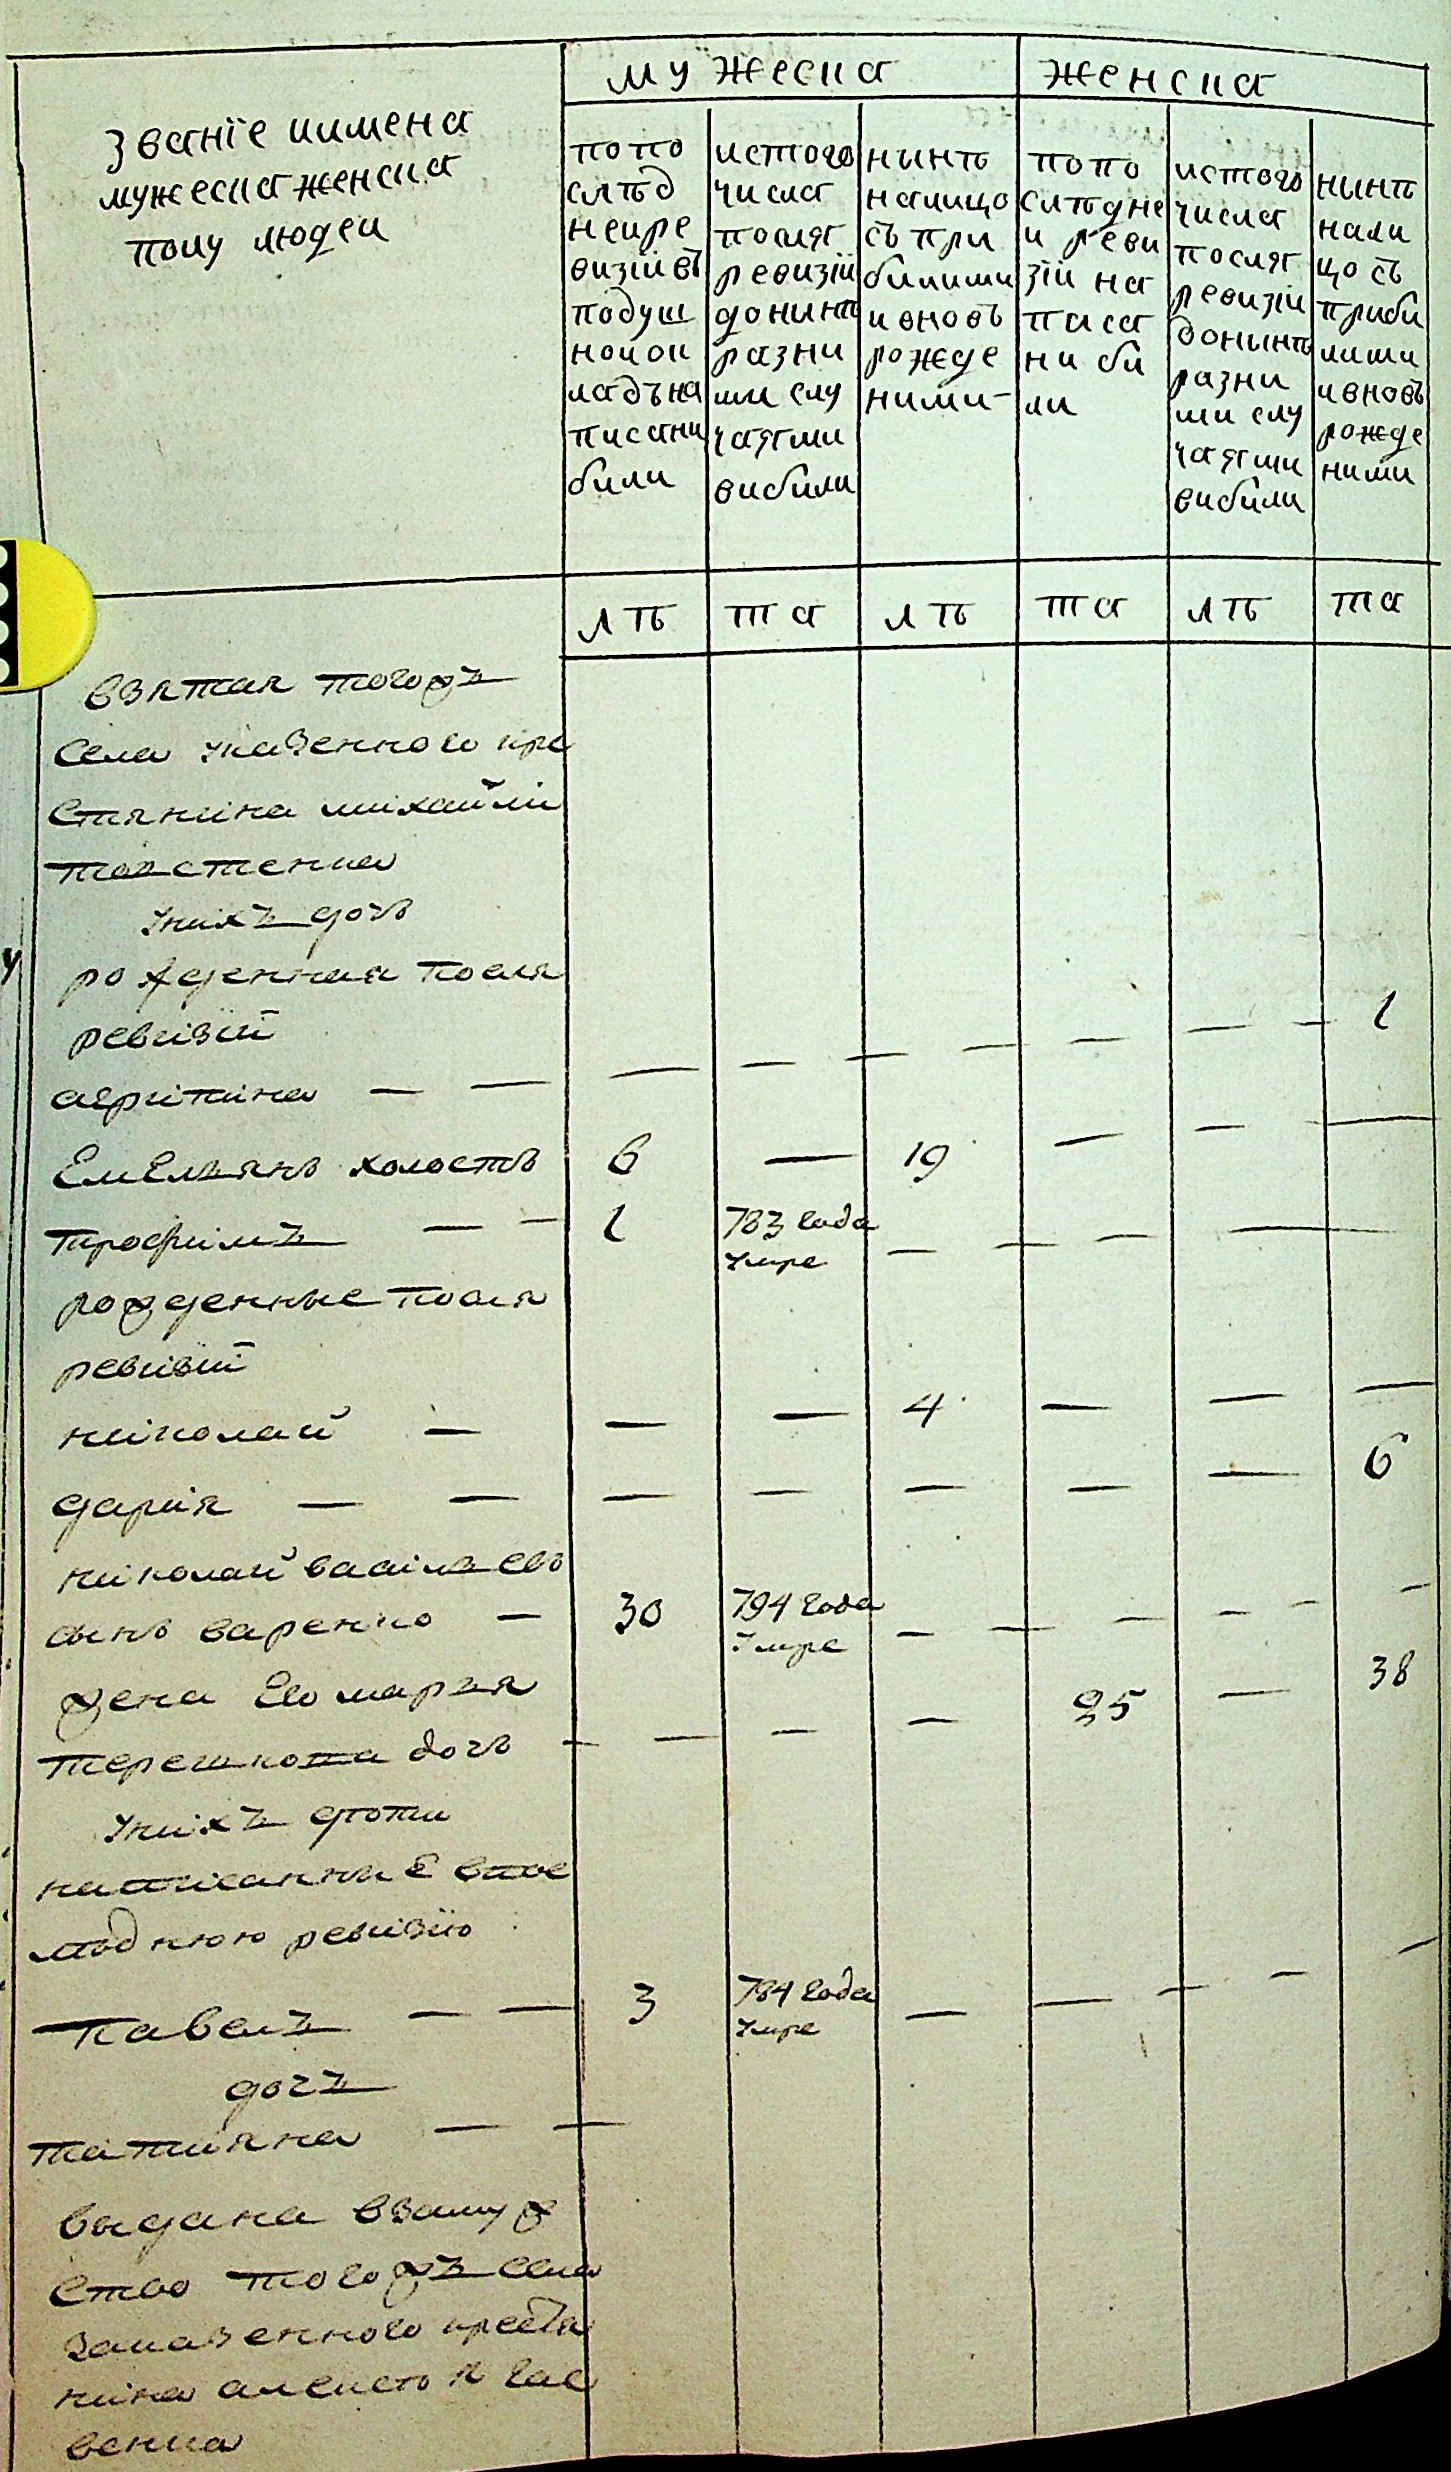 мужеска
женска
званїе иимена
мужеска женска
полу людеи
попо
слѣд
неире
визїи въ
подуш
нои ок
ладъ на
писани
били
истого
числа
посля
ревизїи
до нынѣ
разни
ми слу
чаями
вибили
нынѣ
налицо
съ при
билими
и вновъ
рожде
ними
попо
слѣдне
и реви
зїи на
писа
ни би
ли
истого
числа
посля
ревизїи
до нынѣ
разни
ми слу
чаями
вибили
нынѣ
нали
цо съ
приби
лими
и вновъ
рожде
ними
лѣ та лѣ та лѣ та
взятая тогожъ
села указенного кре
стянина михайли
товстенка
у нихъ дочь
рожденная посля
ревизїи
агрипина — — — — — — — — — 1
Емельянъ холостъ 6 — 19 — — —
трофимъ — — 1 783 года
умре — — — —
рожденные посля
ревизїи
николай — — — 4 — — —
дария — — — — — — — 6
николай василъевъ
сынъ варенко — 30 794 года
умре — — — — — —
жена Его марья
терешкова дочь — — — — 25 — 38
у нихъ дѣти
написанниЕ впос
лѣднюю ревизїю
павелъ — — 3 784 года
умре — — — — —
дочъ
татияна — —
выдана взамуж
ство тогожъ села
заказенного крестя
нина алексѣя гав
венка